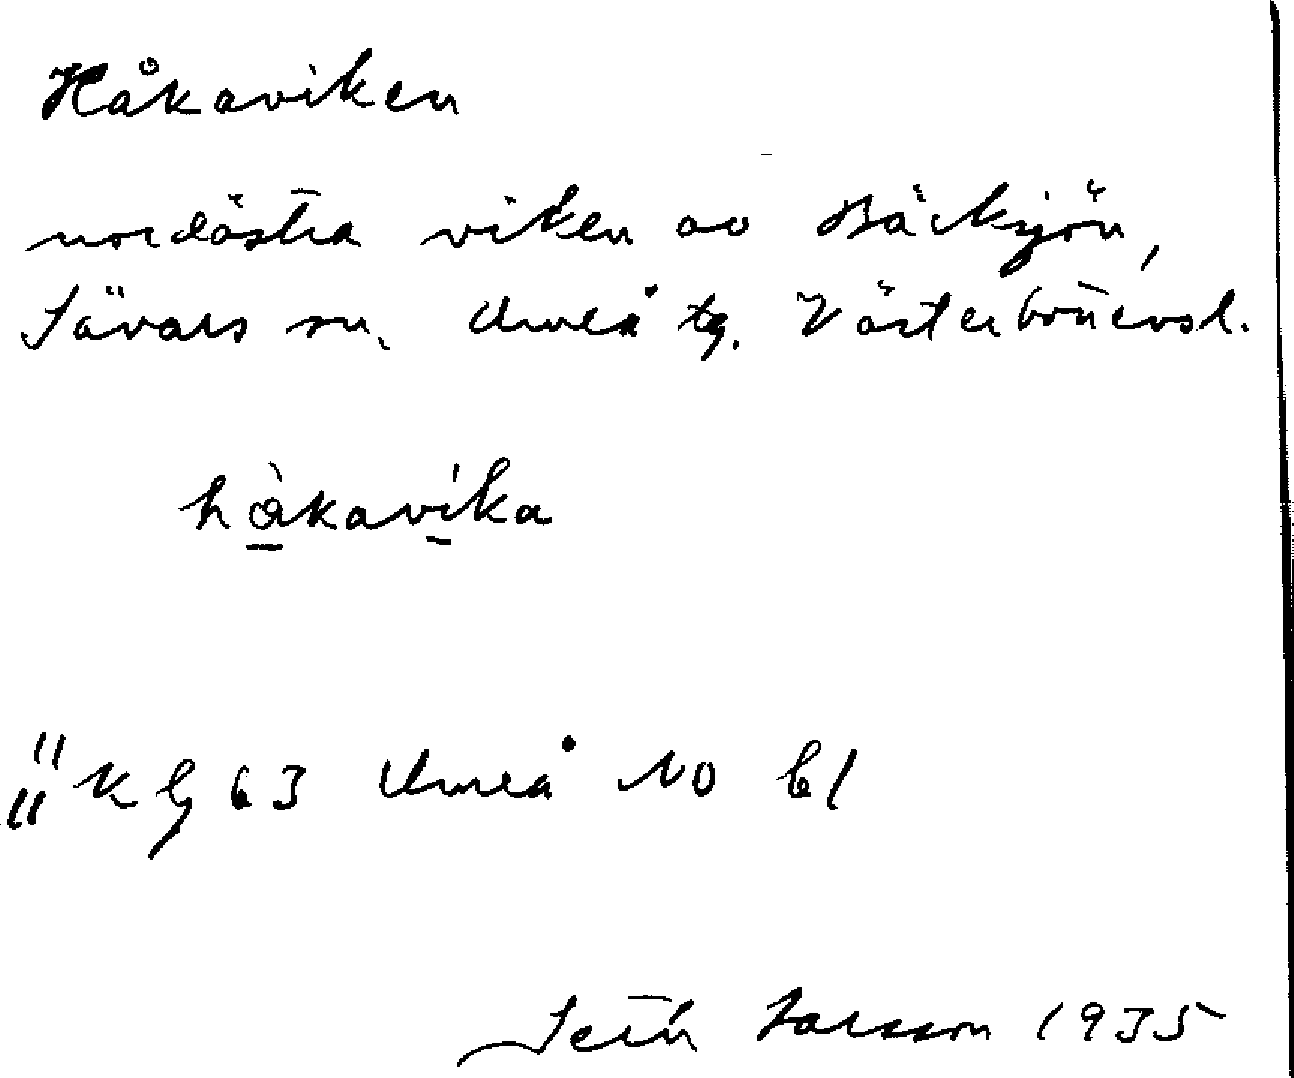 Håkaviken
nordöstra viken av Bäcksjön,
Sävars sn. Umeå tg. Västerbottensl.
håkavika
K G 63 Umeå NO b1
Larsson 1935